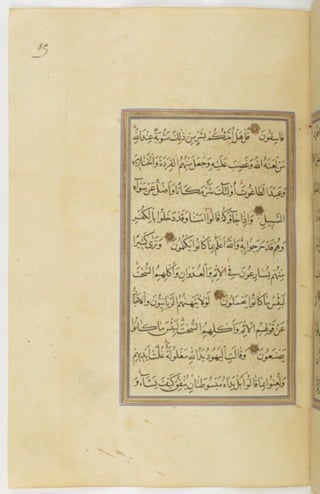 فَاسِقُونَ قُلْ هَلْ أُنَبِّئُكُمْ بِشَرٍّ مِنْ ذَلِكَ مَثُوبَةً عِنْدَ اللَّهِ
مَنْ لَعَنَهُ اللَّهُ وَغَضِبَ عَلَيْهِ وَجَعَلَ مِنْهُمُ الْقِرَدَةَ وَالْخَنَازِيرَ
وَعَبَدَ الطَّاغُوتَ أُولَئِكَ شَرٌّ مَكَانًا وَأَضَلُّ عَنْ سَوَاءِ
السَّبِيلِ وَإِذَا جَاؤُكُمْ قَالُوا آمَنَّا وَقَدْ دَخَلُوا بِالْكُفْرِ
وَهُمْ قَدْ خَرَجُوا بِهِ وَاللَّهُ أَعْلَمُ بِمَا كَانُوا يَكْتُمُونَ وَتَرَى كَثِيرًا
مِنْهُمْ يُسَارِعُونَ فِي الْإِثْمِ وَالْعُدْوَانِ وَأَكْلِهِمُ السُّحْتَ
لَبِئْسَ مَا كَانُوا يَعْمَلُونَ لَوْلَا يَنْهَيهُمُ الرَّبَّانِيُّونَ وَالْأَحْبَارُ
عَنْ قَوْلِهِمُ الْإِثْمَ وَأَكْلِهِمُ السُّحْتَ لَبِئْسَ مَا كَانُوا
يَصْنَعُونَ وَقَالَتِ الْيَهُودُ يَدُ اللَّهِ مَغْلُولَةٌ غُلَّتْ أَيْدِيهِمْ
وَلُعِنُوا بِمَا قَالُوا بَلْ يَدَاهُ مَبْسُوطَتَانِ يُنْفِقُ كَيْفَ يَشَاءُ وَ